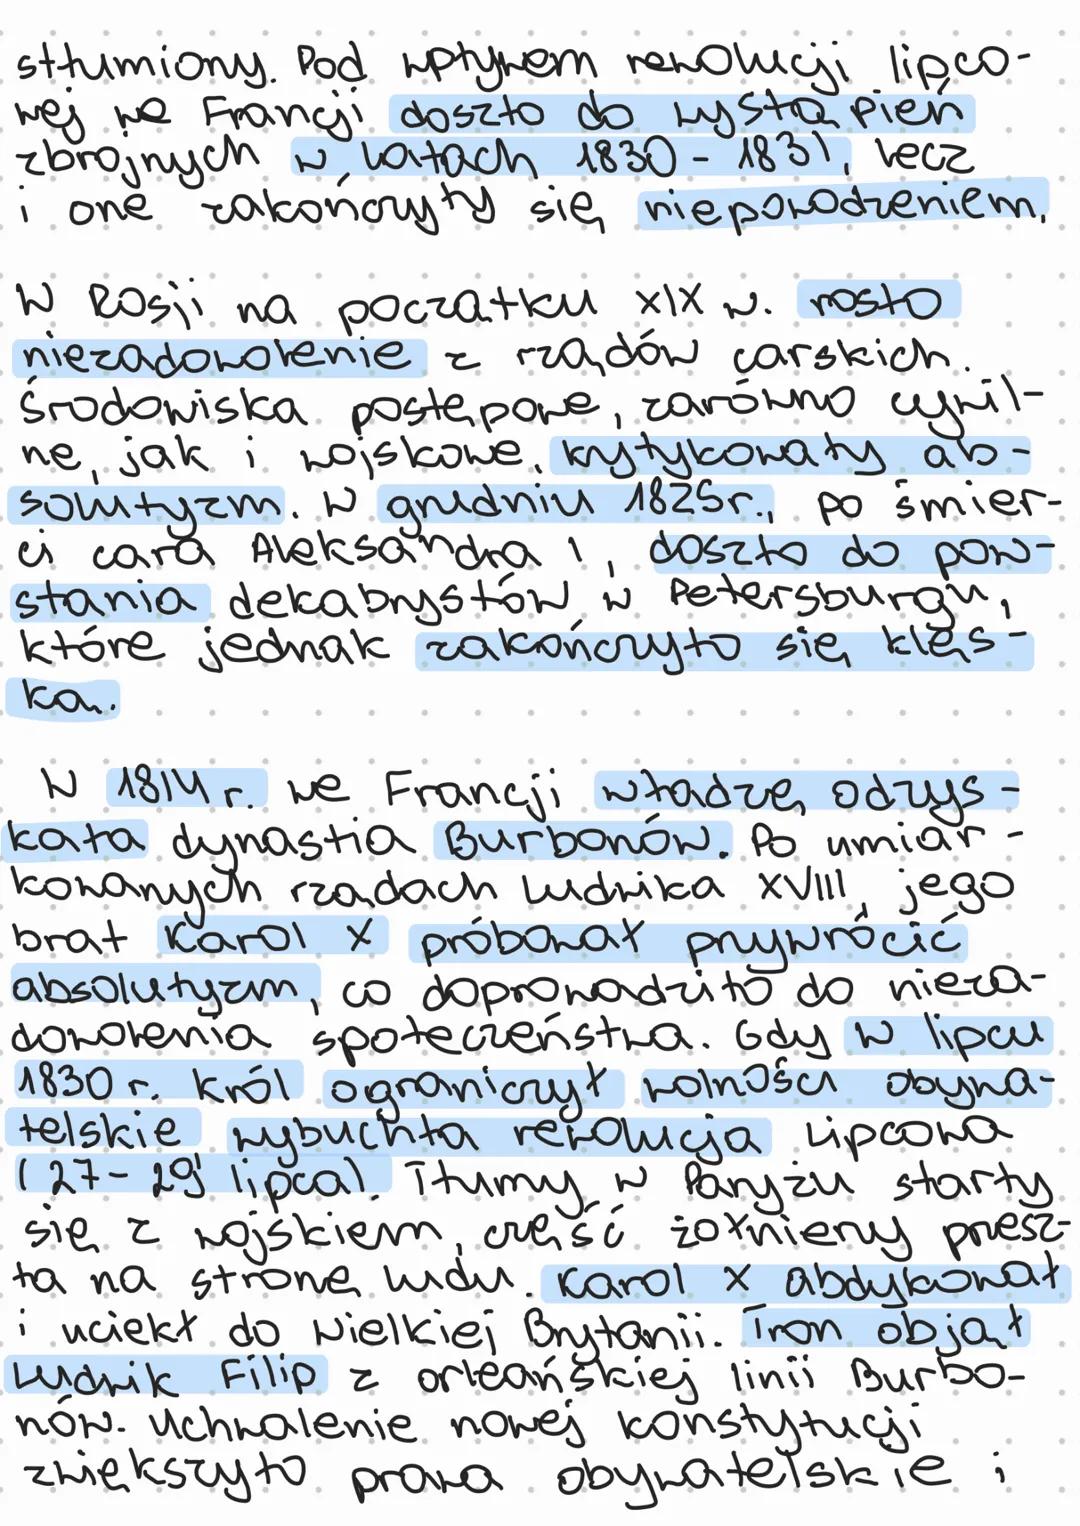 stłumiony. Pod wpływem rewolucji lipco-
wej we Francji doszło do wystąpień
zbrojnych w latach 1830 - 1831, lecz
i one zakończyły się niepowodzeniem.
W Rosji na początku XIX w. rosło
niezadowolenie z rządów carskich.
Środowiska postępowe, zarówno cywil-
ne, jak i wojskowe, krytykowały ab-
solutyzm. W grudniu 1825r., po śmier-
ci cara Aleksandra I, doszło do pow-
stania dekabrystów w Petersburgu,
które jednak zakończyło się klęs-
ką.
W 1814 r. we Francji władzę odzys-
kała dynastia Burbonów. Po umiar-
kowanych rządach Ludwika XVIII, jego
brat Karol X próbował przywrócić
absolutyzm, co doprowadziło do nieza-
dowolenia społeczeństwa. Gdy w lipcu
1830 r. król ograniczył wolności obywa-
telskie wybuchła rewolucja Lipcowa
(27-29 lipca). Tłumy w Paryżu starły
się z wojskiem, część żołnierzy przesz-
ła na stronę ludu. Karol X abdykował
i uciekł do Wielkiej Brytanii. Tron objął
Ludwik Filip z orleańskiej linii Burbo-
nów. Uchwalenie nowej konstytucji
zwiększyło prawa obywatelskie i